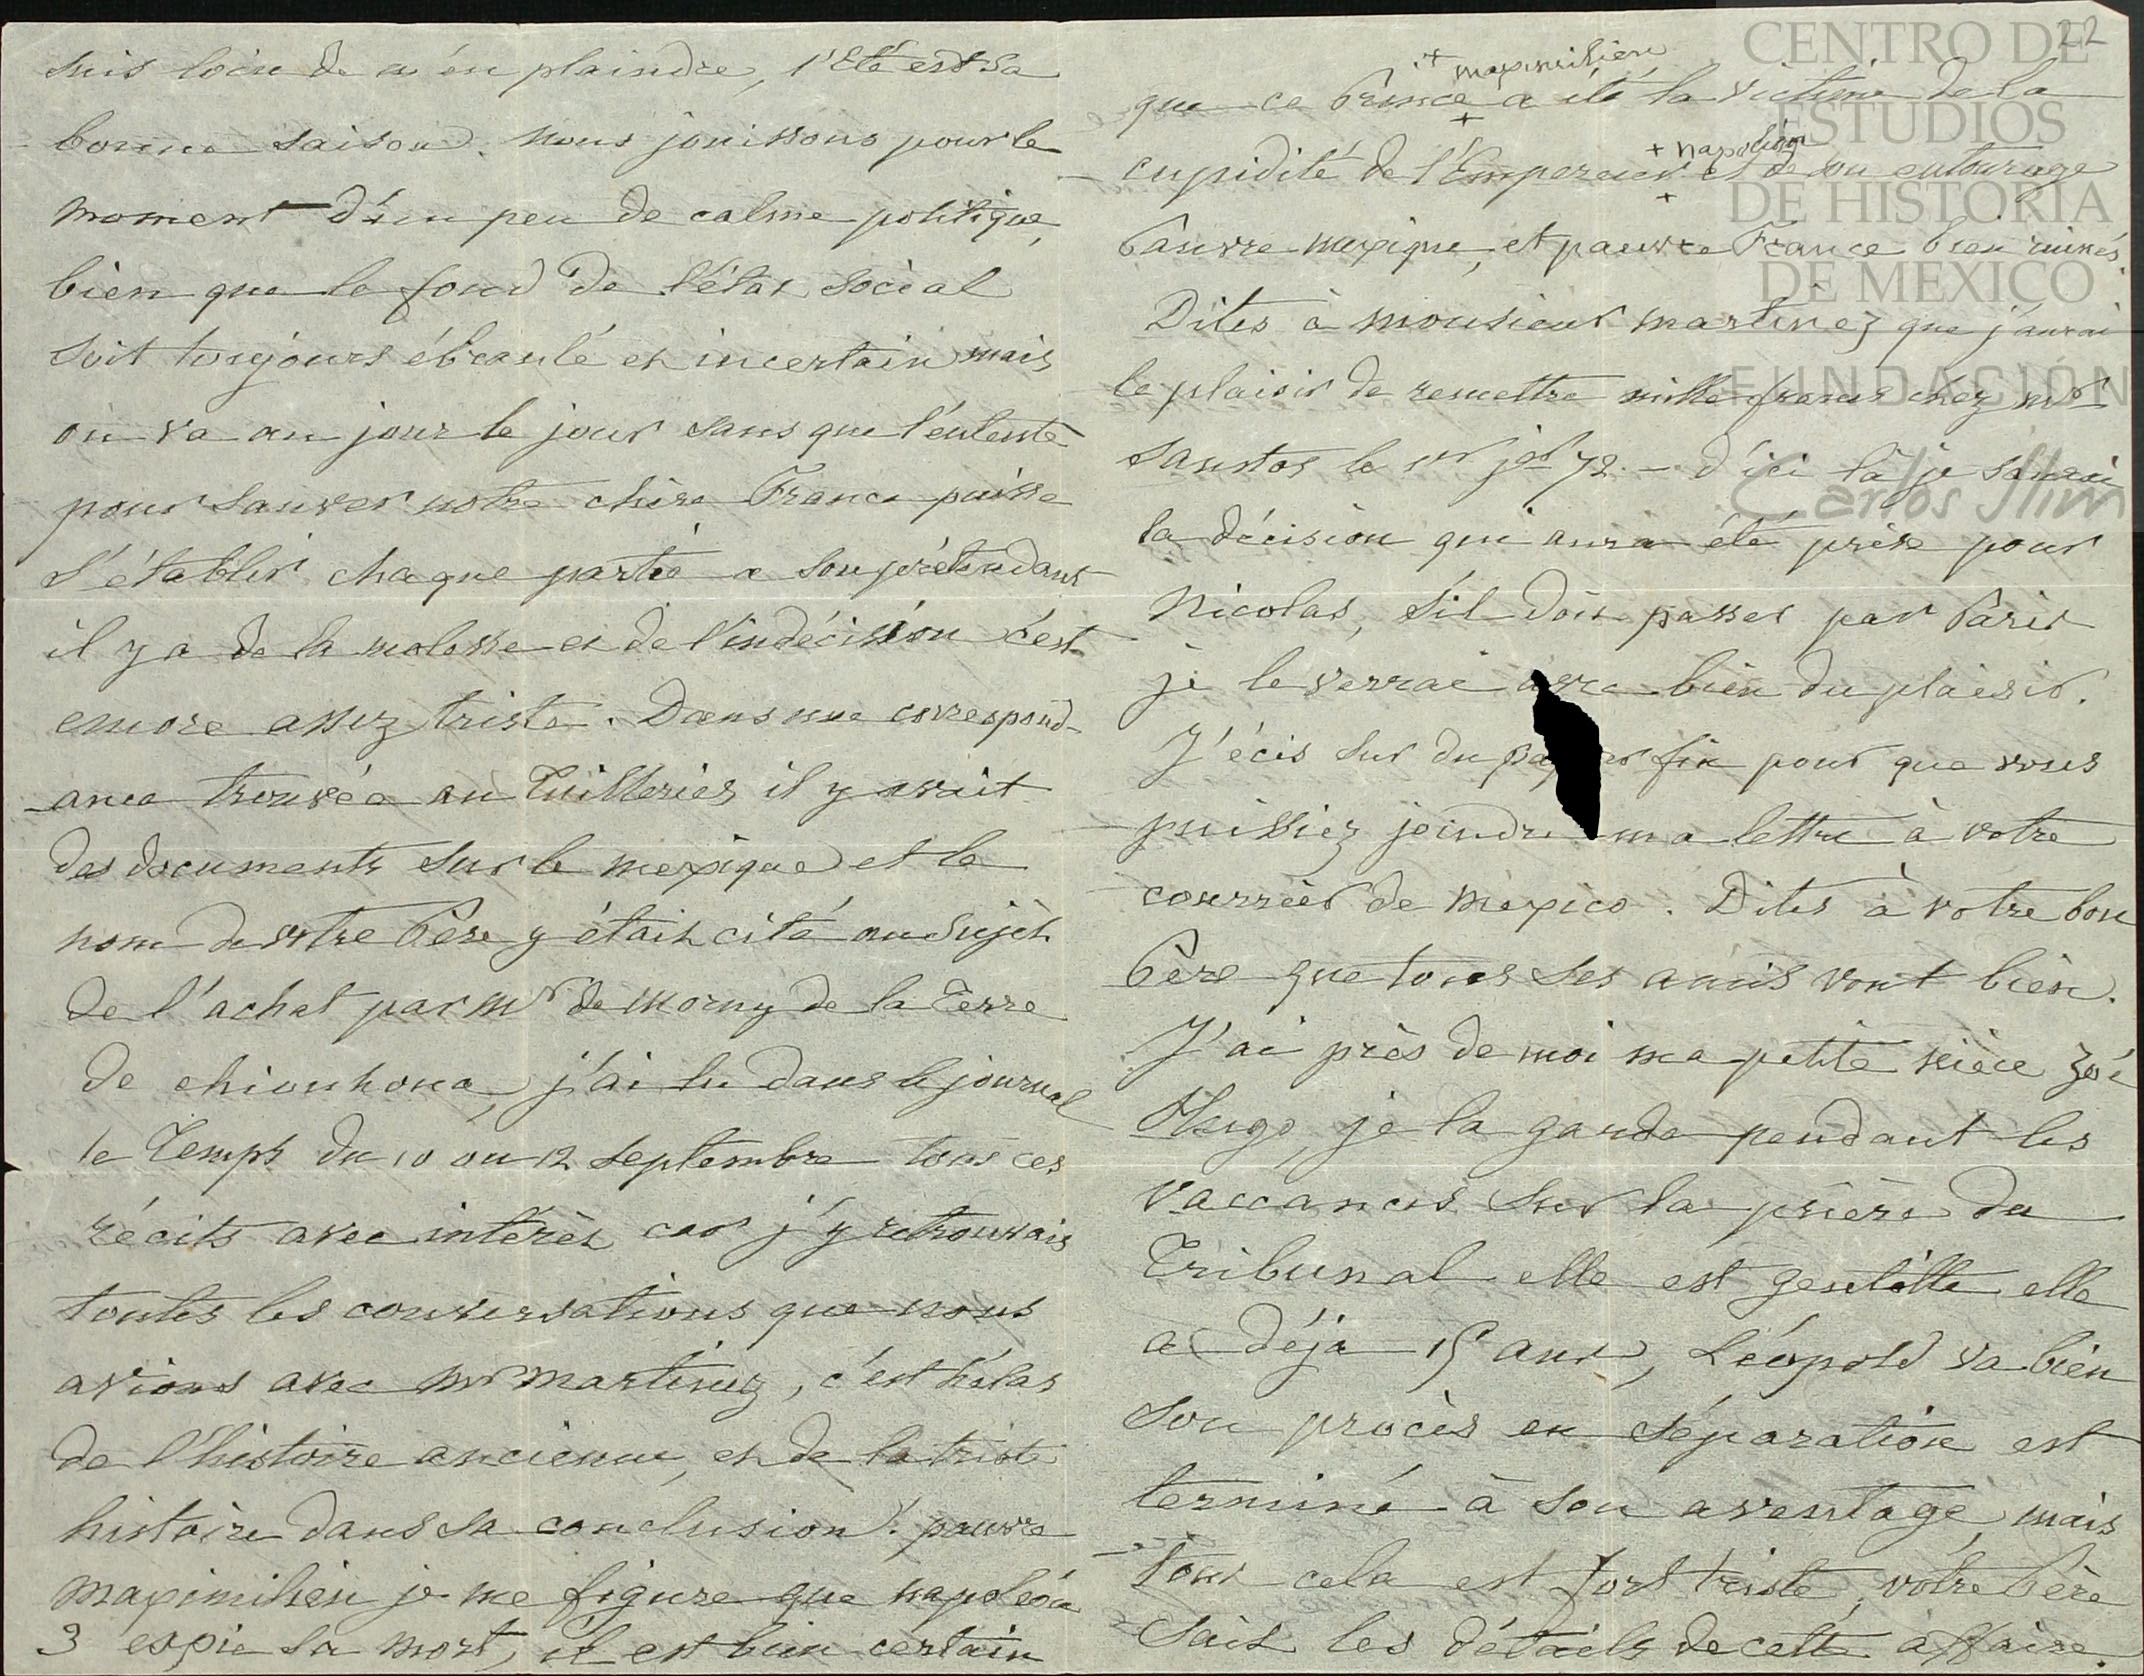 suis loin de m'en plaindre, l'Eté est sa
bonne saison. nous jouissons pour le
moment d'un peu de calme politique,
bien que le fond de l'état social
soit toujours ébranlé et incertain mais
on va au jour le jour sans que l'entente
pour sauver notre chère France puisse
s'établir chaque partie a son prétendant
il y a de la molesse et de l'indécision c'est
encore assez triste. Dans une correspond-
ance trouvée au Tuilleries il y avait
des documents sur le mexique et le
nom de votre Père y était cité au sujet
de l'achat par Mr de Morny de la Terre
de chiouhoua, j'ai lu dans le journal
le Temps du 10 ou 12 septembre tous ces
récits avec intérèt car j'y retrouvais
toutes les conversations que nous
avions avec Mr Martinez, c'est hélas
de l'histoire ancienne, et de la triste
histoire dans sa conclusion! pauvre
Maximilien je me figure que napoléon
3 expie sa mort, il est bien certain
22
+ maximilien
que ce Prince + a été la victime de la
+ napoléon
cupidité de l'Empereur + et de son entourage
Pauvre mexique, et pauvre France bien ruinés.
Dites à monsieur martinez que j'aurai
le plaisir de remettre mille francs chez Mr
Santos le 1er jer 72 - d'ici là je saurai
la décision qui aura été prise pour
Nicolas, s'il doit passer par Paris
je le verrai avec bien du plaisir.
J'écis sur du papier fin pour que vous
puissiez joindre ma lettre à votre
courrier de Mexico. Dites à votre bon
Père que tous ses amis vont bien.
J'ai près de moi ma petite nièce Zoé
Hugo, je la garde pendant les
vaccances sur la prière du
Tribunal elle est gentille elle
a déjà 15 ans, Léopold va bien
son procès en séparation est
terminé à son avantage, mais
tout cela est fort triste, votre Père
sait les détails de cette affaire.
CENTRO DE
ESTUDIOS
DE HISTORIA
DE MEXICO
FUNDACIÓN
Carlos Slim